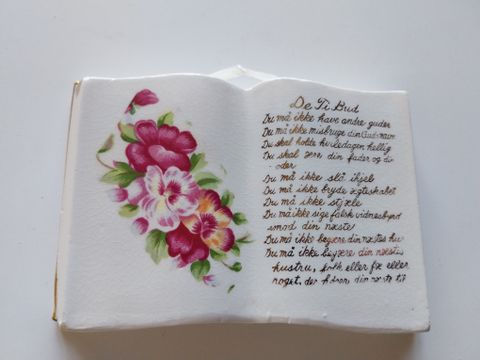 De Ti Bud
Du må ikke have andre guder
Du må ikke misbruge din Guds navn
Du skal holde hviledagen hellig
Du skal ære din fader og din
moder
Du må ikke slå ihjel
Du må ikke bryde ægteskabet
Du må ikke stjæle
Du må ikke sige falsk vidnesbyrd
imod din næste
Du må ikke begære din næstes hus
Du må ikke begære din næstes
hustru, folk eller fæ eller
noget, der hører din næste til